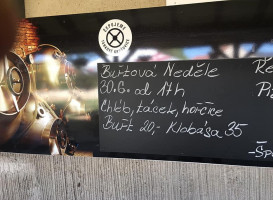 Buřtová Neděle
30.6. od 17h
Chléb, tácek, hořčice
Buřt 20,- Klobása 35